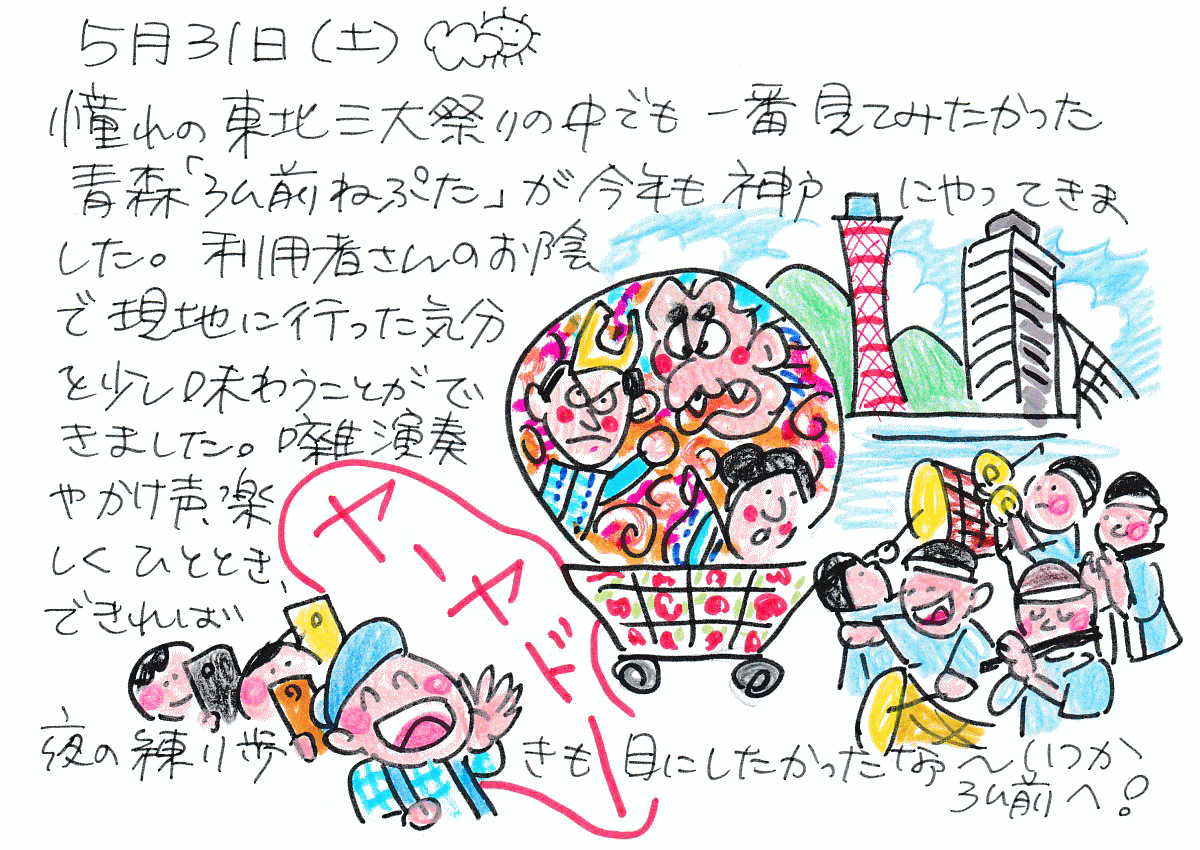 5月31日(土)
憧れの東北三大祭りの中でも一番見てみたかった
青森「弘前ねぷた」が今年も神戸にやってきま
した。利用者さんのお陰
で現地に行った気分
を少し味わうことがで
きました。囃演奏
やかけ声、楽
しくひととき、
できれば
ヤーヤドー
夜の練り歩きも目にしたかったなぁ〜いつか
弘前へ!